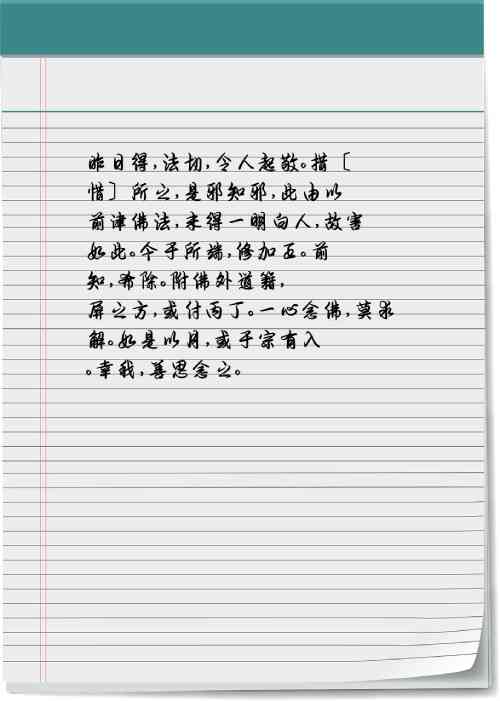 昨日得,法切,令人起敬。措〔
惜〕所之,是邪知邪,此由以
前津佛法,未得一明白人,故害
如此。今于所端,修加五。前
知,希除。附佛外道籍,
屏之方,或付丙丁。一心念佛,莫求
解。如是以月,或于宗有入
。幸我,善思念之。